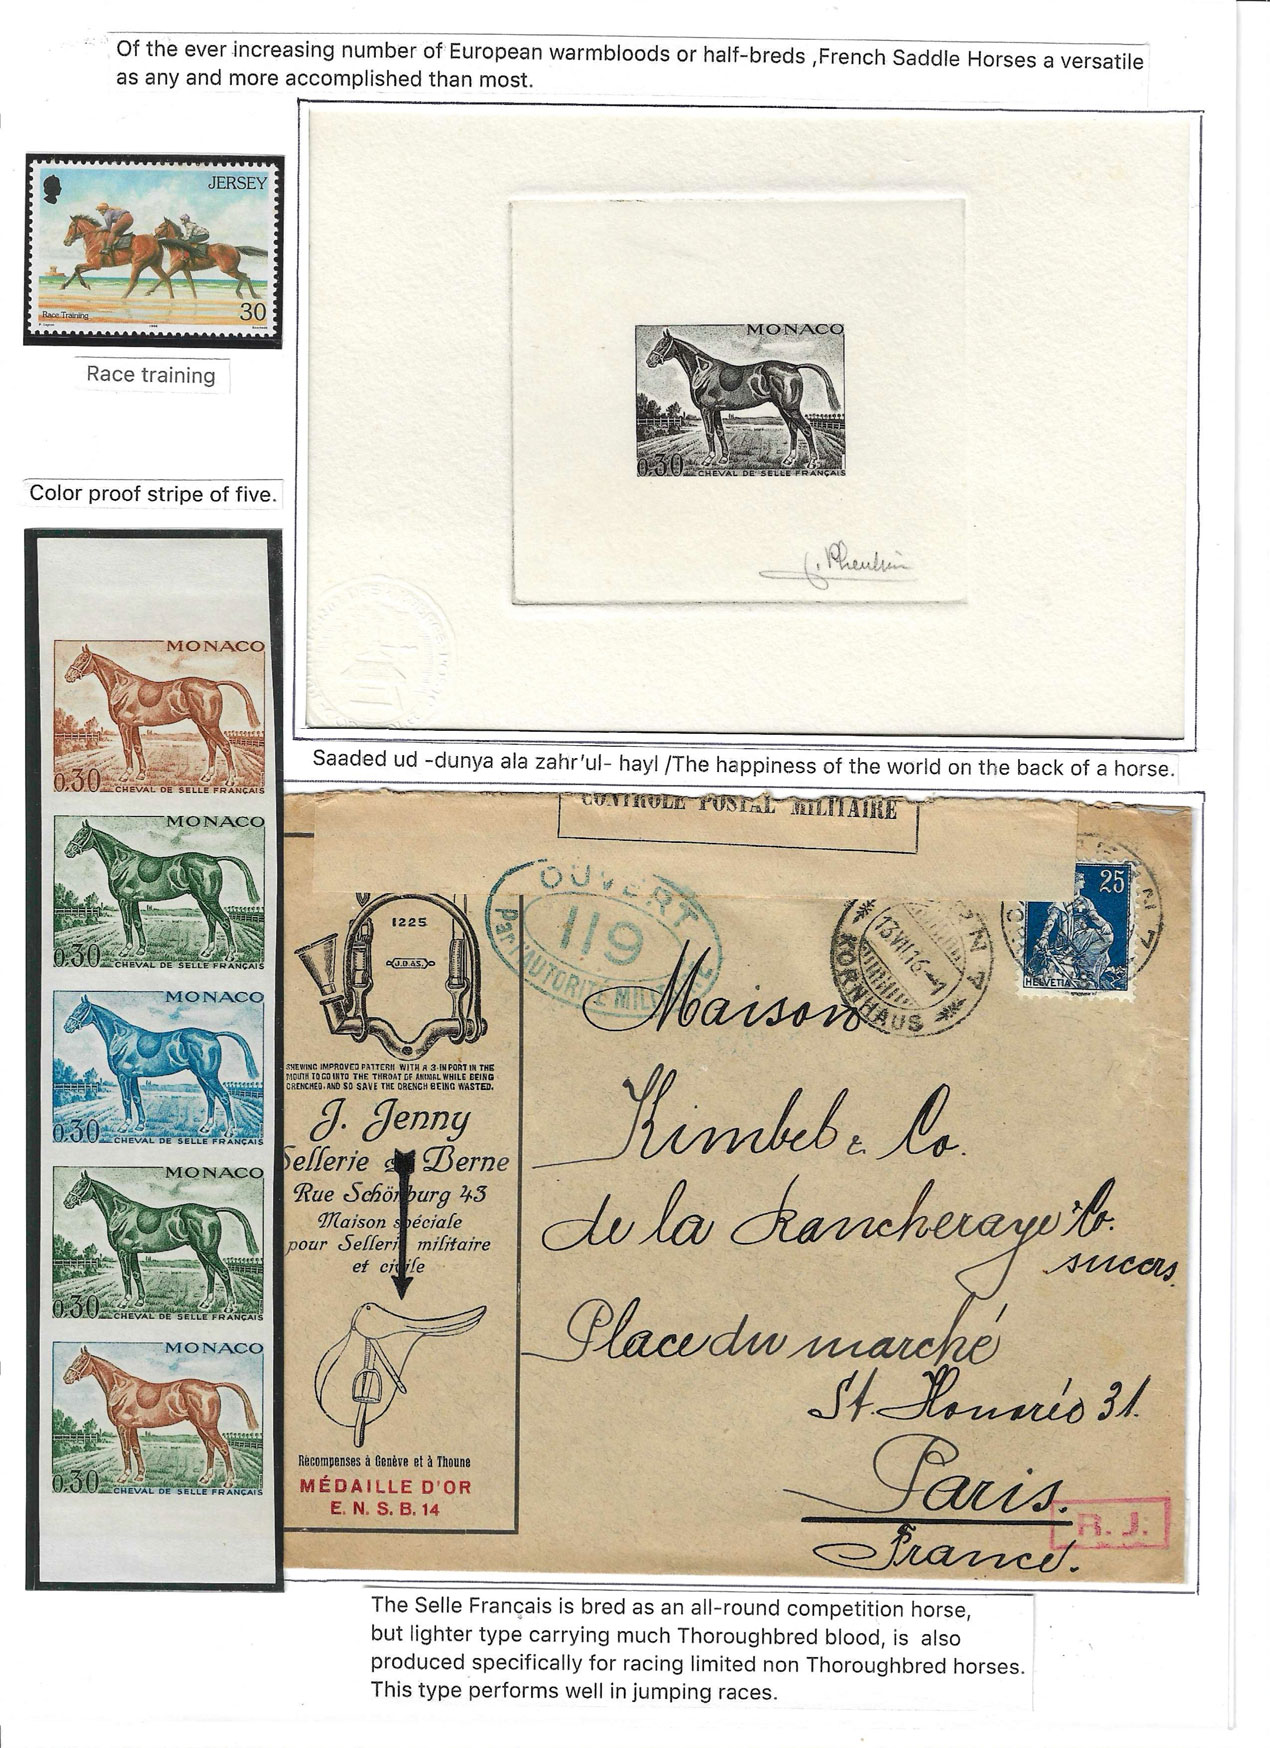 Of the ever increasing number of European warmbloods or half-breds ,French Saddle Horses a versatile
as any and more accomplished than most.
JERSEY
Race Training
30
1986
Race training
MONACO
0,30
CHEVAL DE SELLE FRANÇAIS
Color proof stripe of five.
MONACO
0,30
CHEVAL DE SELLE FRANÇAIS
MONACO
0,30
CHEVAL DE SELLE FRANÇAIS
MONACO
0,30
CHEVAL DE SELLE FRANÇAIS
MONACO
0,30
CHEVAL DE SELLE FRANÇAIS
MONACO
0,30
CHEVAL DE SELLE FRANÇAIS
Saaded ud -dunya ala zahr'ul- hayl /The happiness of the world on the back of a horse.
CONTROLE POSTAL MILITAIRE
OUVERT
119
Par l'AUTORITÉ
1225
J.D.&S.
SHEWING IMPROVED PATTERN WITH A 3-IN PORT IN THE
MOUTH TO GO INTO THE THROAT OF ANIMAL WHILE BEING
DRENCHED, AND SO SAVE THE DRENCH BEING WASTED.
J. Jenny
Sellerie Berne
Rue Schönburg 43
Maison spéciale
pour Sellerie militaire
et civile
Récompenses à Genève et à Thoune
MÉDAILLE D'OR
E. N. S. B. 14
13 VII 16
KORNHAUS
25
HELVETIA
Maison
Kimbel & Co.
de la Rancheraye & Co.
succrs.
Place du marché
St. Honoréo 31.
Paris.
France.
R. J.
The Selle Français is bred as an all-round competition horse,
but lighter type carrying much Thoroughbred blood, is also
produced specifically for racing limited non Thoroughbred horses.
This type performs well in jumping races.